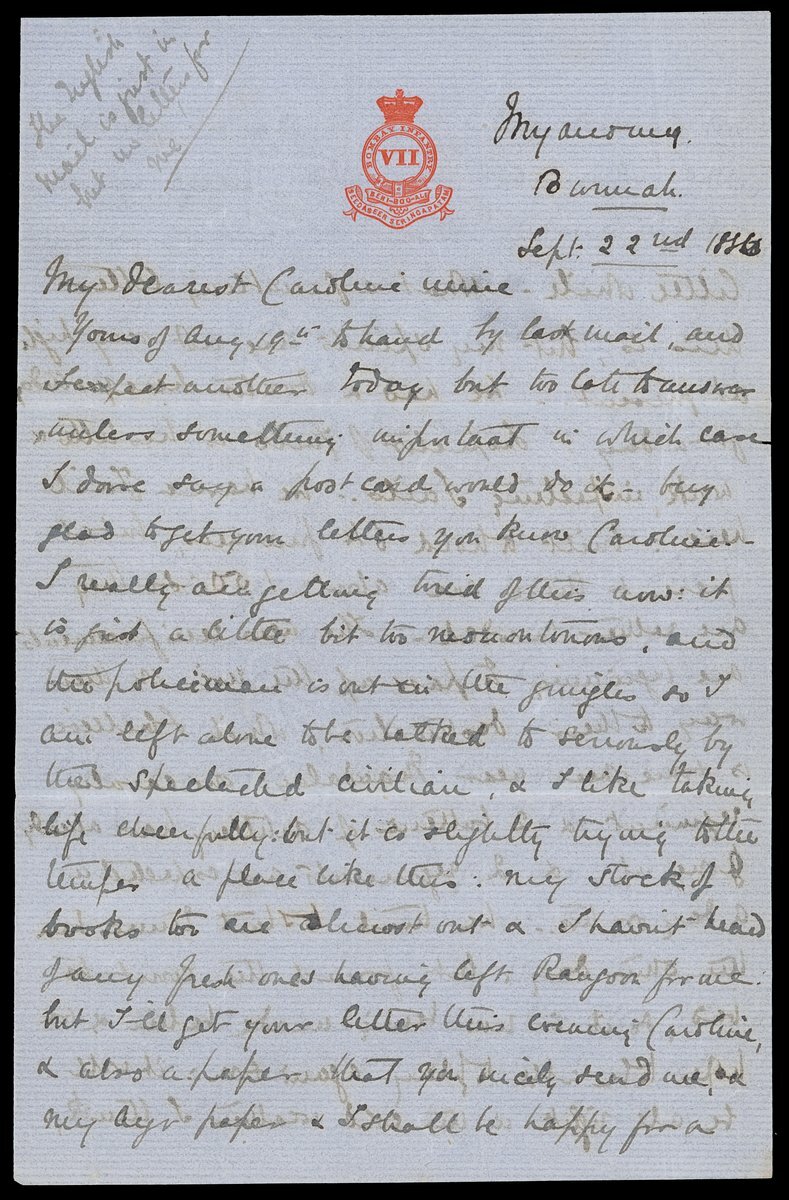 The English
mail is just in
but no letters for
me
BOMBAY INFANTRY
VII
BENI-BOO-ALI
BEEDASEER SERINGAPATAM
Burmah.
Sept. 22nd
My dearest Caroline mine
Yours of Aug 19th to hand by last mail, and
I expect another today but too late to answer
unless something important in which case
I dare say a post card would do it -
glad to get your letters you know Caroline -
I really am getting tired of this now: it
is just a little bit too monontonous, and
the policeman is out in the jungles so I
am left alone to be talked to seriously by
the spectacled civilian, & I like taking
life cheerfully: but it is slightly trying to the
temper a place like this. My stock of
books too are almost out & I havn't heard
of any fresh ones having left Rangoon for me.
but I'll get your letter this evening Caroline,
& also a paper that you nicely send me, &
my Ayr paper & I shall be happy for a